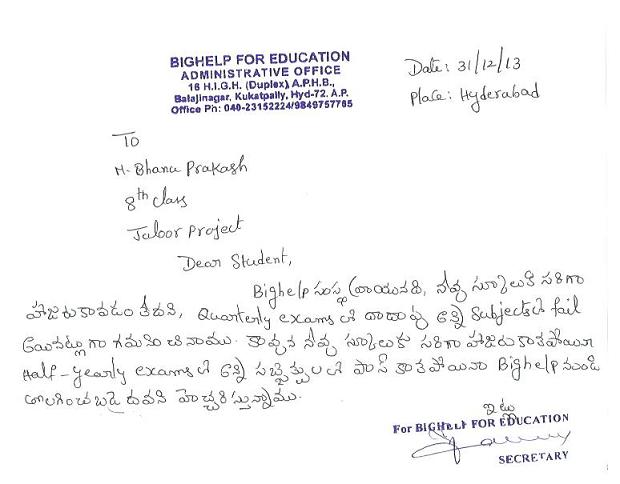 BIGHELP FOR EDUCATION
ADMINISTRATIVE OFFICE
16 H.I.G.H. (Duplex) A.P.H.B.,
Balajinagar, Kukatpally, Hyd-72. A.P.
Office Ph: 040-23152224/9849757765
Date: 31/12/13
Place: Hyderabad
To
M. Bhanu Prakash
8th class
Jaloor Project
Dear Student,
Bighelp సంస్థ వ్రాయునది, నీవు స్కూలుకి సరిగా
హాజరుకావడం లేదని, Quarterly exams లో దాదాపు అన్ని Subjects లో fail
అయినట్లుగా గమనించినాము. కావున నీవు స్కూలుకు సరిగా హాజరు కాకపోయినా
Half-yearly exams లో అన్ని సబ్జెక్టులలో పాస్ కాకపోయినా Bighelp నుండి
తొలగించబడెదవని హెచ్చరిస్తున్నాము.
ఇట్లు
For BIGHELP FOR EDUCATION
SECRETARY